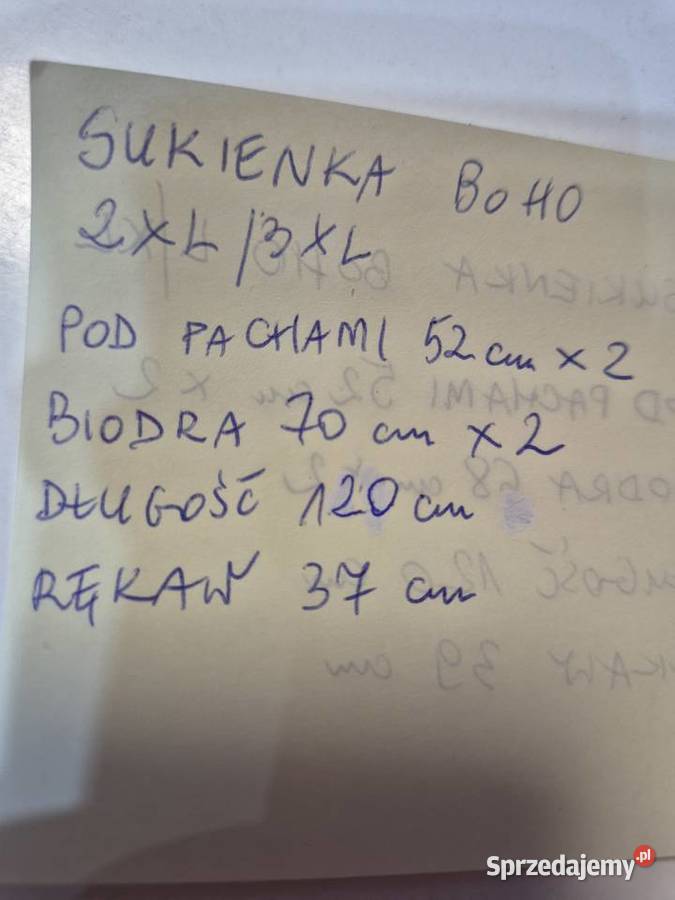 SUKIENKA BOHO
2XL/3XL
POD PACHAMI 52 cm x 2
BIODRA 70 cm x 2
DŁUGOŚĆ 120 cm
RĘKAW 37 cm
Sprzedajemy.pl